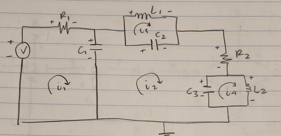 + R₁ -
+ L₁ -
i₃
+ C₂ -
+ V -
+ C₁ -
+ R₂ -
i₁
i₂
+ C₃ -
i₄
+ L₂ -